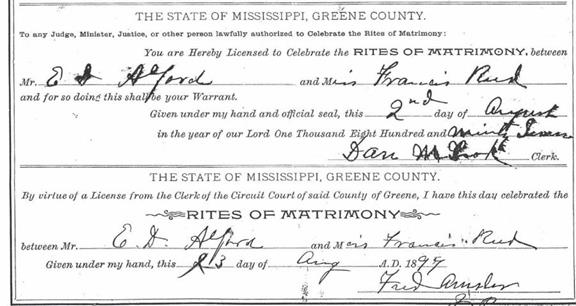 THE STATE OF MISSISSIPPI, GREENE COUNTY.
To any Judge, Minister, Justice, or other person lawfully authorized to Celebrate the Rites of Matrimony:
You are Hereby Licensed to Celebrate the RITES OF MATRIMONY, between
Mr. E D Alford and Miss Francis Reed
and for so doing this shall be your Warrant.
Given under my hand and official seal, this 2nd day of August
in the year of our Lord One Thousand Eight Hundred and Ninty Seven
Dan Clerk.
THE STATE OF MISSISSIPPI, GREENE COUNTY.
By virtue of a License from the Clerk of the Circuit Court of said County of Greene, I have this day celebrated the
RITES OF MATRIMONY
between Mr. E. D. Alford and Miss Francis Reed
Given under my hand, this 3 day of Aug A.D. 1897
Fred